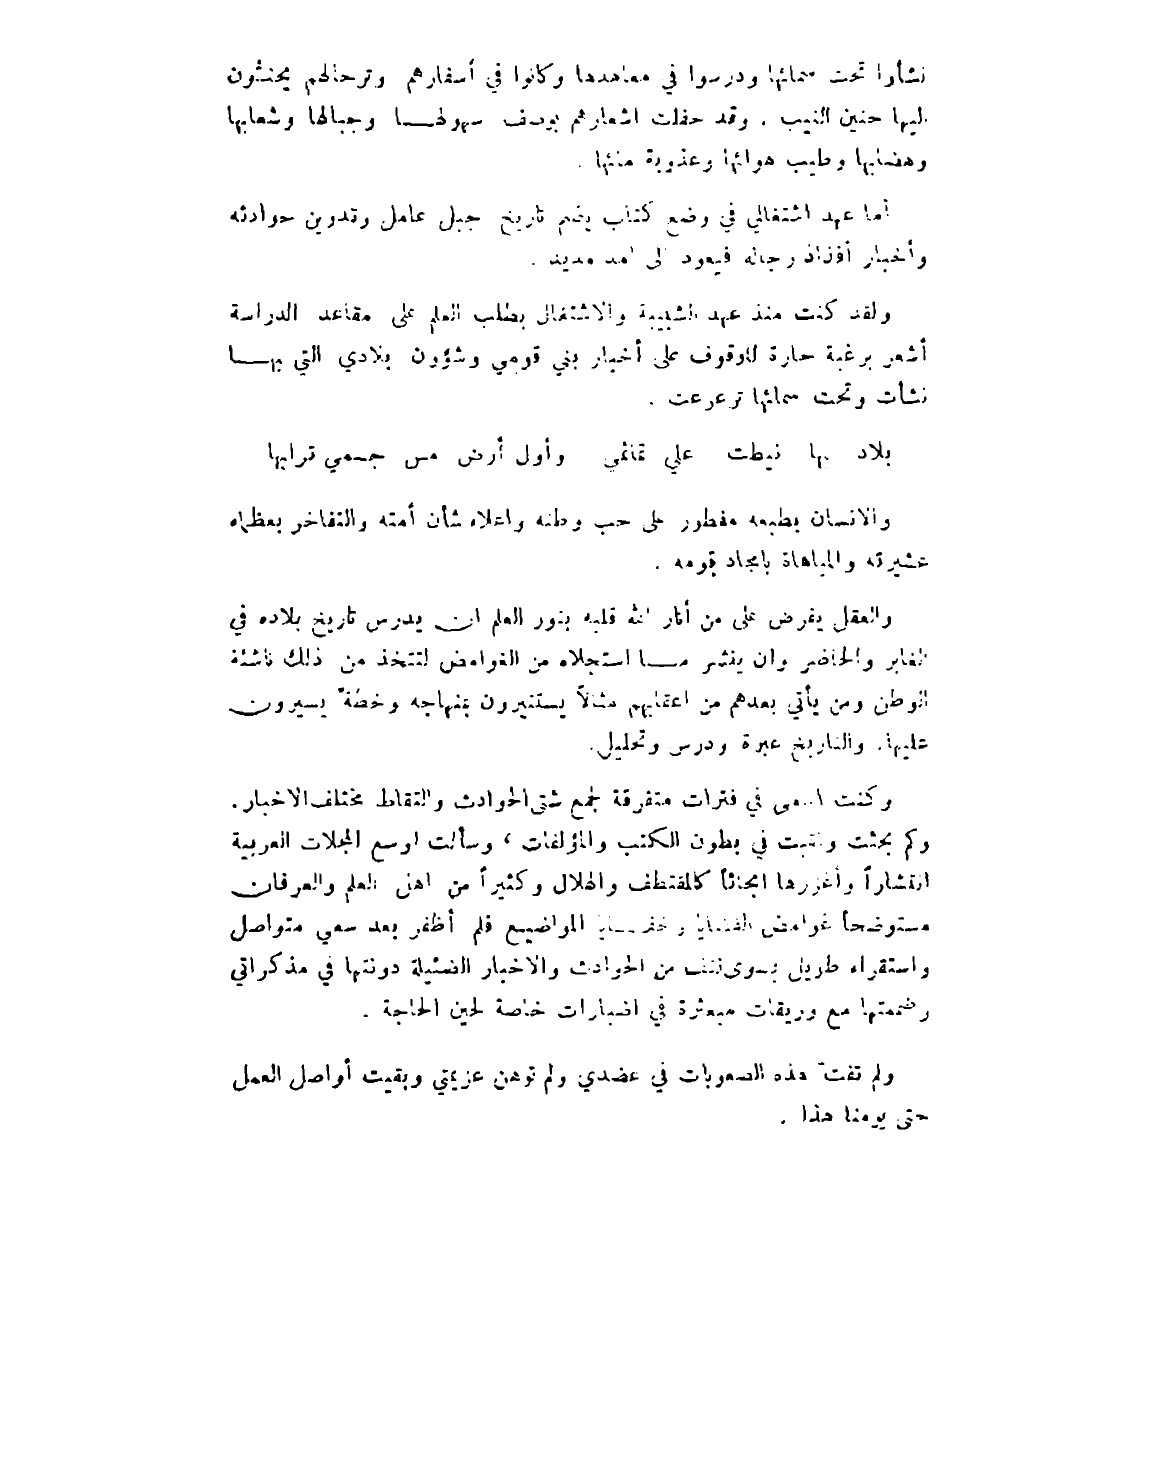 نشأوا تحت سمائها ودرسوا في معاهدها وكانوا في أسفارهم وترحالهم يحنّون
اليها حنين النيب . وقد حفلت اشعارهم بوصف سهولهـــا وجبالها وشعابها
وهضابها وطيب هوائها وعذوبة مائها .
أما عهد اشتغالي في وضع كتاب يضم تاريخ جبل عامل وتدوين حوادثه
وأخبار أفذاذ رجاله فيعود الى امد مديد .
ولقد كنت منذ عهد الشبيبة والاشتغال بطلب العلم على مقاعد الدراسة
أشعر برغبة حارة للوقوف على أخبار بني قومي وشؤون بلادي التي بهـــا
نشأت وتحت سمائها ترعرعت .
بلاد بها نيطت علي تمائمي وأول أرض مس جسمي ترابها
والانسان بطبعه مفطور على حب وطنه واعلاء شأن أمته والتفاخر بعظماء
عشيرته والمباهاة بامجاد قومه .
والعقل يفرض على من أنار الله قلبه بنور العلم ان يدرس تاريخ بلاده في
الغابر والحاضر وان ينشر مـــا استجلاه من الغوامض لتتخذ من ذلك ناشئة
الوطن ومن يأتي بعدهم من اعقابهم مثالاً يستنيرون بمنهاجه وخطة يسيرون
عليها. والتاريخ عبرة ودرس وتحليل.
وكنت اسعى في فترات متفرقة لجمع شتى الحوادث والتقاط مختلف الاخبار.
وكم بحثت ونقبت في بطون الكتب والمؤلفات ، وسألت اوسع المجلات العربية
انتشاراً وأغزرها ابحاثاً كالمقتطف والهلال وكثيراً من اهل العلم والعرفان
مستوضحاً غوامض القضايا وخفـــايا المواضيع فلم أظفر بعد سعي متواصل
واستقراء طويل بسوى نتف من الحوادث والاخبار الضئيلة دونتها في مذكراتي
وضممتها مع وريقات مبعثرة في اضبارات خاصة لحين الحاجة .
ولم تفتّ هذه الصعوبات في عضدي ولم توهن عزيمتي وبقيت أواصل العمل
حتى يومنا هذا .